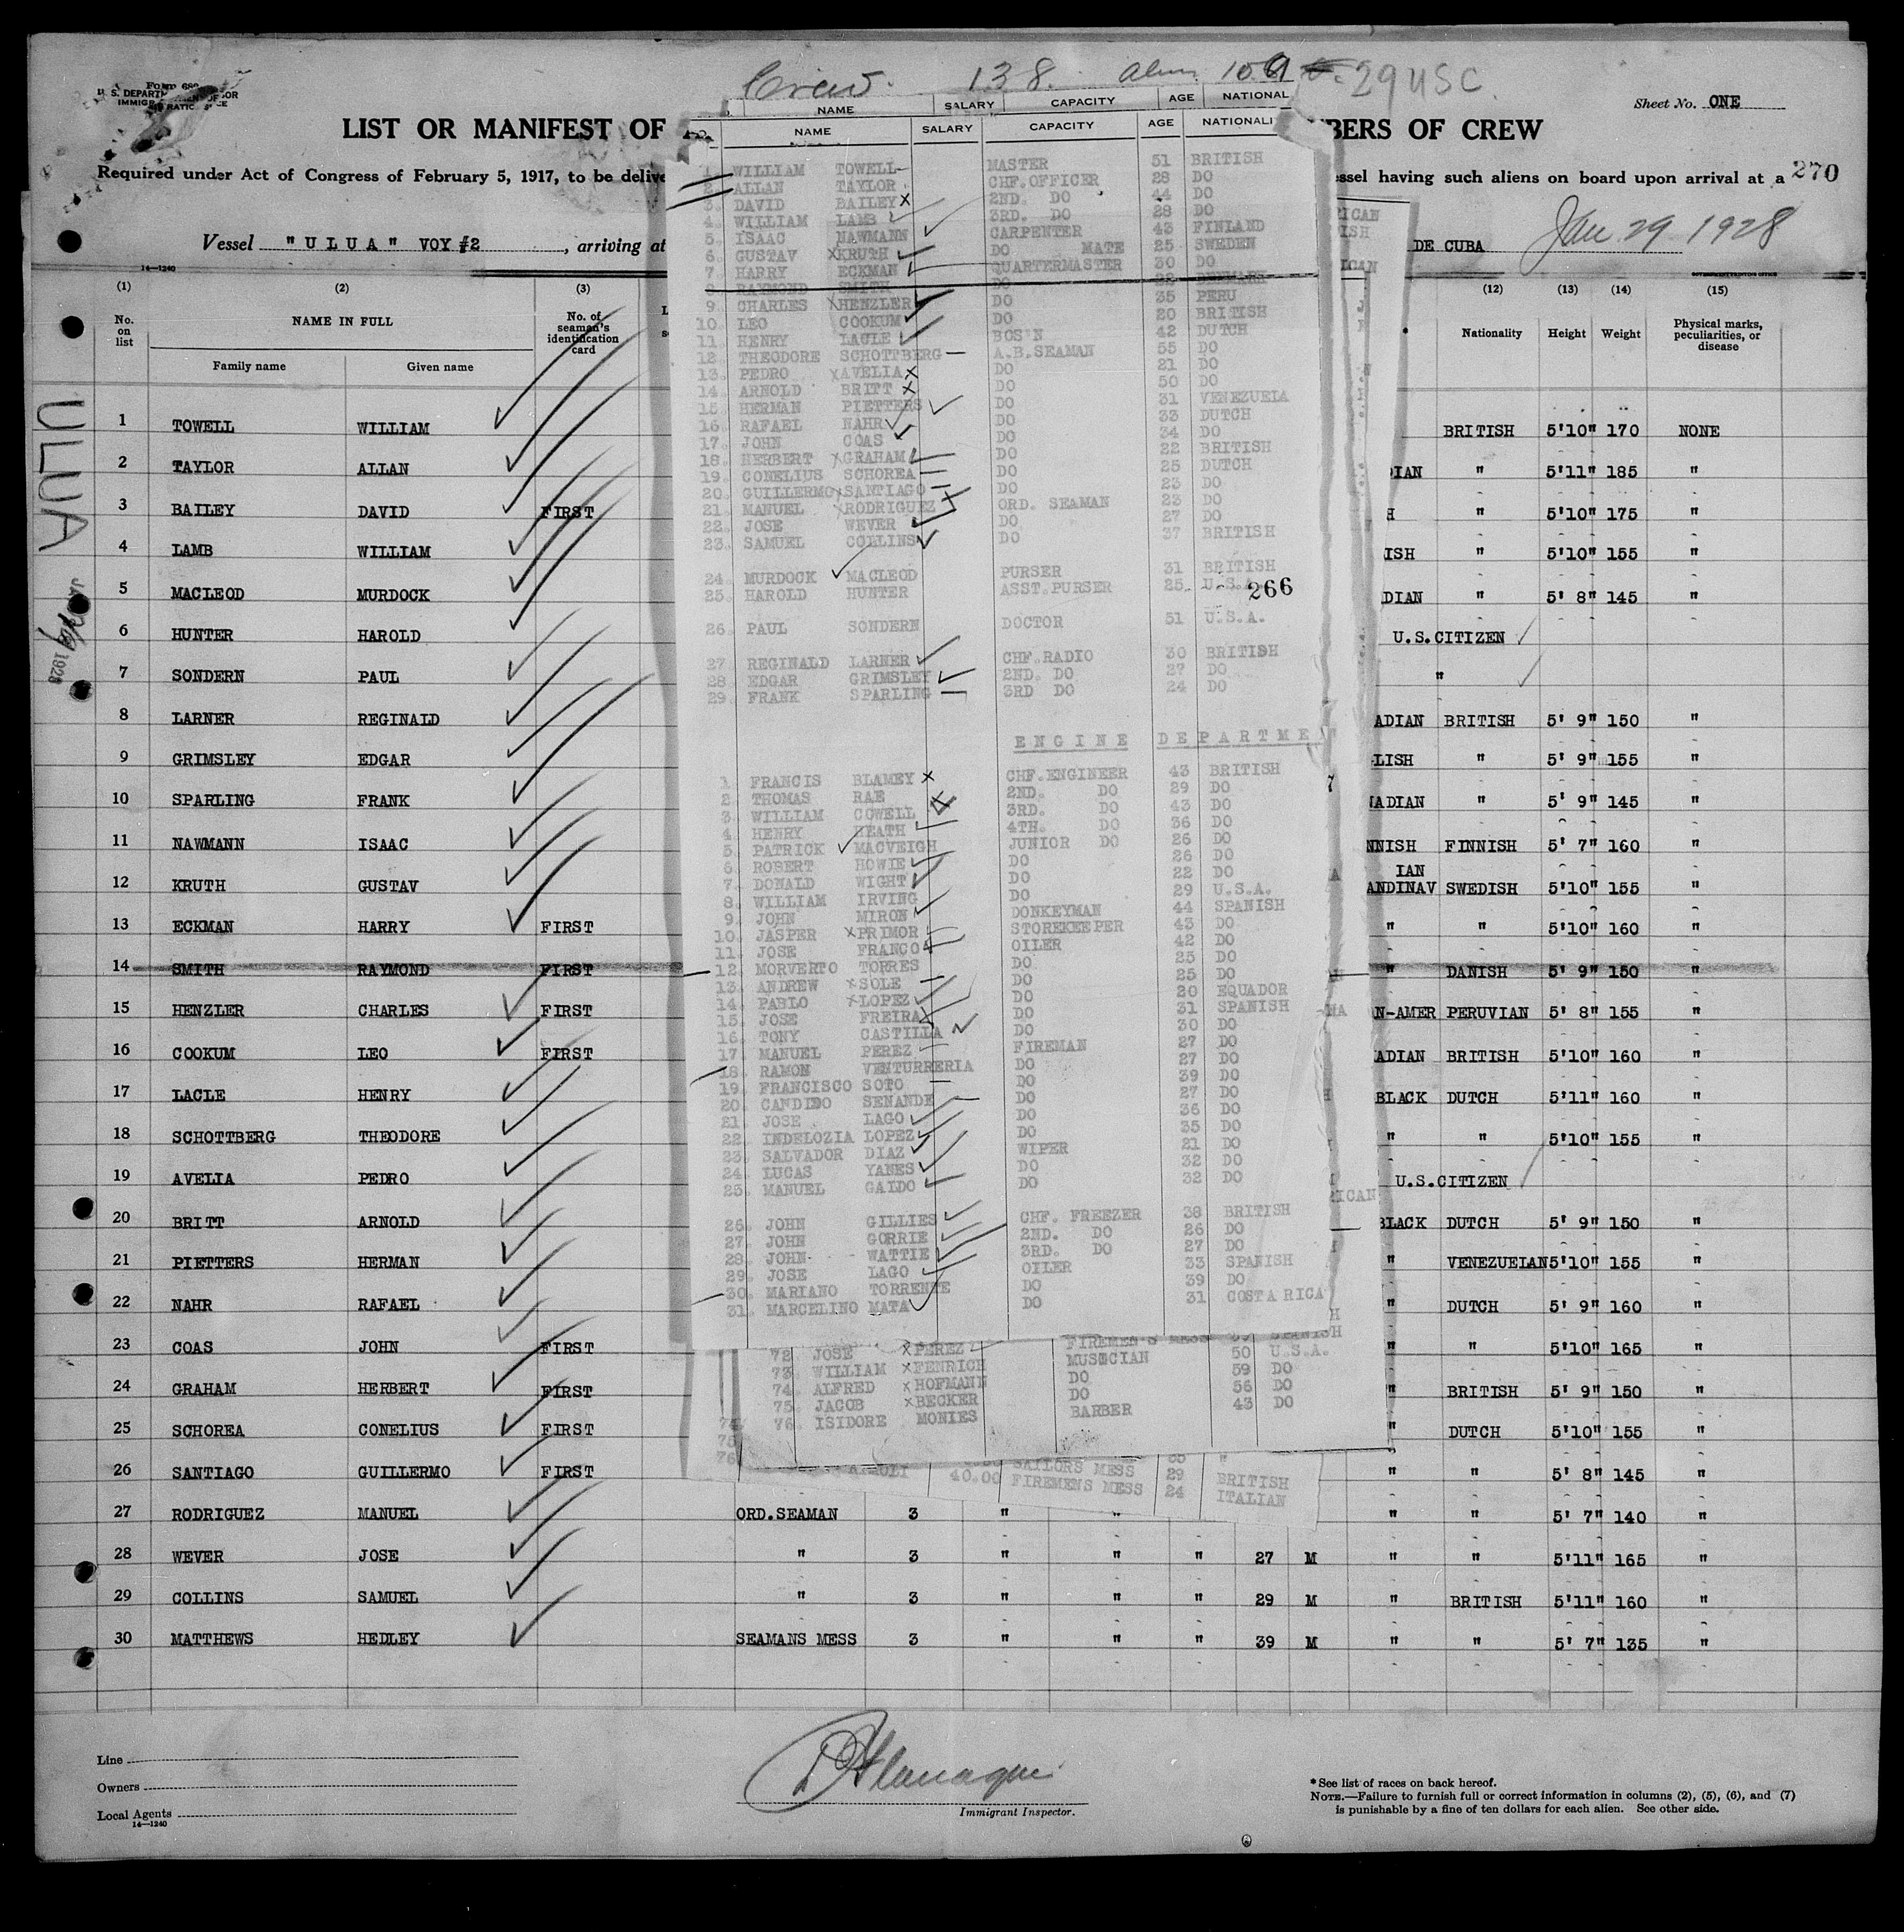 Crew. 138. 109 29 USC
Form 680
U. S. DEPARTMENT OF LABOR
IMMIGRATION SERVICE
Sheet No. ONE
LIST OR MANIFEST OF
MBERS OF CREW
Required under Act of Congress of February 5, 1917, to be delive
essel having such aliens on board upon arrival at a 270
Vessel "ULUA" VOY #2, arriving at
DE CUBA Jan 29 1928
14—1240
ULUA
1928
(1) (2) (3)
No. on list NAME IN FULL No. of seaman's identification card
Family name Given name
(12) (13) (14) (15)
Nationality Height Weight Physical marks, peculiarities, or disease
1 TOWELL WILLIAM BRITISH 5'10" 170 NONE
2 TAYLOR ALLAN DIAN " 5'11" 185 "
3 BAILEY DAVID FIRST H " 5'10" 175 "
4 LAMB WILLIAM ISH " 5'10" 155 "
5 MACLEOD MURDOCK DIAN " 5' 8" 145 "
6 HUNTER HAROLD U.S.CITIZEN
7 SONDERN PAUL "
8 LARNER REGINALD ADIAN BRITISH 5' 9" 150 "
9 GRIMSLEY EDGAR LISH " 5' 9" 155 "
10 SPARLING FRANK NADIAN " 5' 9" 145 "
11 NAWMANN ISAAC NNISH FINNISH 5' 7" 160 "
12 KRUTH GUSTAV ANDINAV IAN SWEDISH 5'10" 155 "
13 ECKMAN HARRY FIRST " " 5'10" 160 "
14 SMITH RAYMOND FIRST " DANISH 5' 9" 150 "
15 HENZLER CHARLES FIRST N-AMER PERUVIAN 5' 8" 155 "
16 COOKUM LEO FIRST ADIAN BRITISH 5'10" 160 "
17 LACLE HENRY BLACK DUTCH 5'11" 160 "
18 SCHOTTBERG THEODORE " " 5'10" 155 "
19 AVELIA PEDRO U.S.CITIZEN
20 BRITT ARNOLD BLACK DUTCH 5' 9" 150 "
21 PIETTERS HERMAN " VENEZUEIAN 5'10" 155 "
22 NAHR RAFAEL " DUTCH 5' 9" 160 "
23 COAS JOHN FIRST " " 5'10" 165 "
24 GRAHAM HERBERT FIRST " BRITISH 5' 9" 150 "
25 SCHOREA CONELIUS FIRST " DUTCH 5'10" 155 "
26 SANTIAGO GUILLERMO FIRST " " 5' 8" 145 "
27 RODRIGUEZ MANUEL ORD.SEAMAN 3 " " " " 5' 7" 140 "
28 WEVER JOSE " 3 " " " 27 M " " 5'11" 165 "
29 COLLINS SAMUEL " 3 " " " 29 M " BRITISH 5'11" 160 "
30 MATTHEWS HEDLEY SEAMANS MESS 3 " " " 39 M " " 5' 7" 135 "
NAME SALARY CAPACITY AGE NATIONAL
NAME SALARY CAPACITY AGE NATIONALI
1. WILLIAM TOWELL MASTER 51 BRITISH
2. ALLAN TAYLOR CHF.OFFICER 28 DO
3. DAVID BAILEY 2ND. DO 44 DO
4. WILLIAM LAMB 3RD. DO 28 DO
5. ISAAC NAWMANN CARPENTER 43 FINLAND
6. GUSTAV KRUTH DO MATE 25 SWEDEN
7. HARRY ECKMAN QUARTERMASTER 30 DO
8 RAYMOND SMITH DO 22 DENMARK
9. CHARLES HENZLER DO 35 PERU
10. LEO COOKUM DO 20 BRITISH
11. HENRY LACLE BOS'N 42 DUTCH
12. THEODORE SCHOTTBERG A.B.SEAMAN 55 DO
13. PEDRO AVELIA DO 21 DO
14. ARNOLD BRITT DO 50 DO
15. HERMAN PIETTERS DO 31 VENEZUEIA
16. RAFAEL NAHR DO 33 DUTCH
17. JOHN COAS DO 34 DO
18. HERBERT GRAHAM DO 22 BRITISH
19. CONELIUS SCHOREA DO 25 DUTCH
20. GUILLERMO SANTIAGO DO 23 DO
21. MANUEL RODRIGUEZ ORD. SEAMAN 23 DO
22. JOSE WEVER DO 27 DO
23. SAMUEL COLLINS DO 37 BRITISH
24. MURDOCK MACLEOD PURSER 31 BRITISH
25. HAROLD HUNTER ASST.PURSER 25 U.S.A.
266
26. PAUL SONDERN DOCTOR 51 U.S.A.
27. REGINALD LARNER CHF.RADIO 30 BRITISH
28. EDGAR GRIMSLEY 2ND. DO 27 DO
29. FRANK SPARLING 3RD DO 24 DO
ENGINE DEPARTME
1 FRANCIS BLAMEY CHF.ENGINEER 43 BRITISH
2. THOMAS RAE 2ND. DO 29 DO
3. WILLIAM COWELL 3RD. DO 43 DO
4. HENRY HEATH 4TH. DO 36 DO
5. PATRICK MACVEIGH JUNIOR DO 26 DO
6. ROBERT HOWIE DO 26 DO
7. DONALD WIGHT DO 22 DO
8. WILLIAM IRVING DO 29 U.S.A.
9. JOHN MIRON DONKEYMAN 44 SPANISH
10. JASPER PRIMOR STOREKEEPER 43 DO
11. JOSE FRANCO OILER 42 DO
12. MORVERTO TORRES DO 25 DO
13. ANDREW SOLE DO 25 DO
14. PABLO LOPEZ DO 20 EQUADOR
15. JOSE FREIRA DO 31 SPANISH
16. TONY CASTILLA DO 30 DO
17. MANUEL PEREZ FIREMAN 27 DO
18. RAMON VENTURRERIA DO 27 DO
19. FRANCISCO SOTO DO 39 DO
20. CANDIDO SENANDE DO 27 DO
21. JOSE LAGO DO 36 DO
22. INDELOZIA LOPEZ DO 35 DO
23. SALVADOR DIAZ WIPER 21 DO
24. LUCAS YANES DO 32 DO
25. MANUEL GAIDO DO 32 DO
26. JOHN GILLIES CHF. FREEZER 38 BRITISH
27. JOHN GORRIE 2ND. DO 26 DO
28. JOHN WATTIE 3RD. DO 27 DO
29. JOSE LAGO OILER 33 SPANISH
30. MARIANO TORRENTE DO 39 DO
31. MARCELINO MATA DO 31 COSTA RICA
72 JOSE PEREZ FIREMEN'S MESS SPANISH
73. WILLIAM FENRICH MUSICIAN 50 U.S.A.
74. ALFRED HOFMANN DO 59 DO
75. JACOB BECKER DO 56 DO
76. ISIDORE MONIES BARBER 43 DO
74
75
76
SAILORS MESS
40.00 FIREMENS MESS 29 BRITISH
24 ITALIAN
Line
Owners
Local Agents
14—1240
Immigrant Inspector.
*See list of races on back hereof.
NOTE.—Failure to furnish full or correct information in columns (2), (5), (6), and (7)
is punishable by a fine of ten dollars for each alien. See other side.